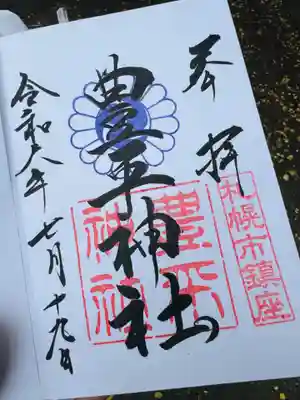 奉拝
札幌市鎮座
豊平神社
豊平
神社
令和六年七月十九日